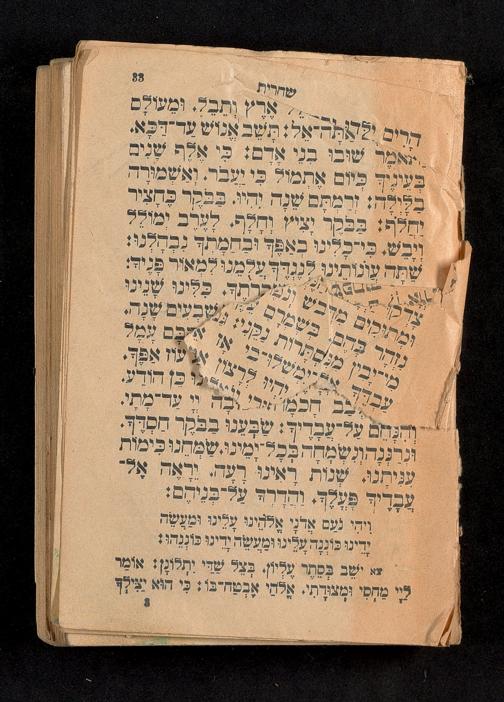 33
שחרית
אֶרֶץ וְתֵבֵל. וּמֵעוֹלָם
הָרִים אַתָּה־אֵל: תָּשֵׁב אֱנוֹשׁ עַד־דַּכָּא.
וַתֹּאמֶר שׁוּבוּ בְנֵי אָדָם: כִּי אֶלֶף שָׁנִים
בְּעֵינֶיךָ כְּיוֹם אֶתְמוֹל כִּי יַעֲבֹר. וְאַשְׁמוּרָה
בַלָּיְלָה: זְרַמְתָּם שֵׁנָה יִהְיוּ. בַּבֹּקֶר כֶּחָצִיר
יַחֲלֹף: בַּבֹּקֶר יָצִיץ וְחָלָף. לָעֶרֶב יְמוֹלֵל
וְיָבֵשׁ. כִּי־כָלִינוּ בְאַפֶּךָ וּבַחֲמָתְךָ נִבְהָלְנוּ:
שַׁתָּה עֲוֹנוֹתֵינוּ לְנֶגְדֶּךָ עֲלֻמֵנוּ לִמְאוֹר פָּנֶיךָ:
כִּלִּינוּ שָׁנֵינוּ
שִׁבְעִים שָׁנָה.
עָמָל
עֹז אַפֶּךָ.
כֵּן הוֹדַע.
וּמְתוּקִים מִדְּבַשׁ
נִזְהָר בָּהֶם בְּשָׁמְרָם
מִי־יָבִין מִנִּסְתָּרוֹת נַקֵּנִי:
עַבְדֶּךָ אַל־יִמְשְׁלוּ־בִי אָז
יִהְיוּ לְרָצוֹן
יְיָ עַד־מָתָי.
וְהִנָּחֵם עַל־עֲבָדֶיךָ: שַׂבְּעֵנוּ בַבֹּקֶר חַסְדֶּךָ.
וּנְרַנְּנָה וְנִשְׂמְחָה בְּכָל־יָמֵינוּ. שַׂמְּחֵנוּ כִּימוֹת
עִנִּיתָנוּ. שְׁנוֹת רָאִינוּ רָעָה. יֵרָאֶה אֶל־
עֲבָדֶיךָ פָעֳלֶךָ. וַהֲדָרְךָ עַל־בְּנֵיהֶם:
וִיהִי נֹעַם אֲדֹנָי אֱלֹהֵינוּ עָלֵינוּ וּמַעֲשֵׂה
יָדֵינוּ כּוֹנְנָה עָלֵינוּ וּמַעֲשֵׂה יָדֵינוּ כּוֹנְנֵהוּ:
צא יֹשֵׁב בְּסֵתֶר עֶלְיוֹן. בְּצֵל שַׁדַּי יִתְלוֹנָן: אוֹמַר
לַיְיָ מַחְסִי וּמְצוּדָתִי. אֱלֹהַי אֶבְטַח־בּוֹ: כִּי הוּא יַצִּילְךָ
3